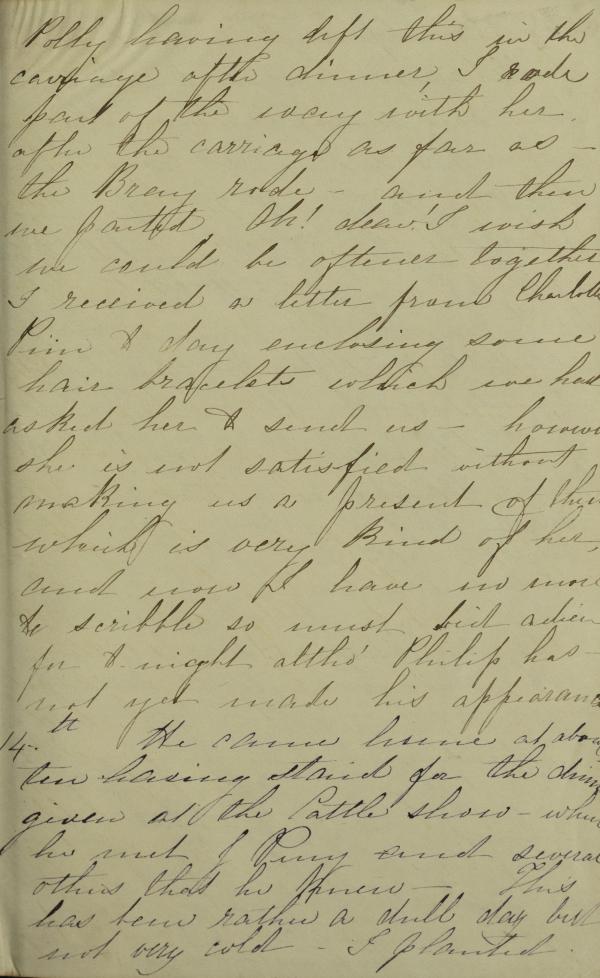 Polly having left this in the
carriage after dinner, I rode
part of the way with her,
after the carriage as far as -
the Bray rode - and then
we parted. Oh! dear! I wish
we could be oftener together
I received a letter from Charlotte
Pim to day enclosing some
hair bracelets which we had
asked her to send us - howev
she is not satisfied without
making us a present of them
which is very kind of her,
and now I have no more
to scribble so must bid adieu
for to-night altho' Philip has -
not yet made his appearance
14.th He came home at about
ten having staid for the dinn
given at the Cattle show - where
he met J Penny and several
others that he knew - This
has been rather a dull day but
not very cold - I planted